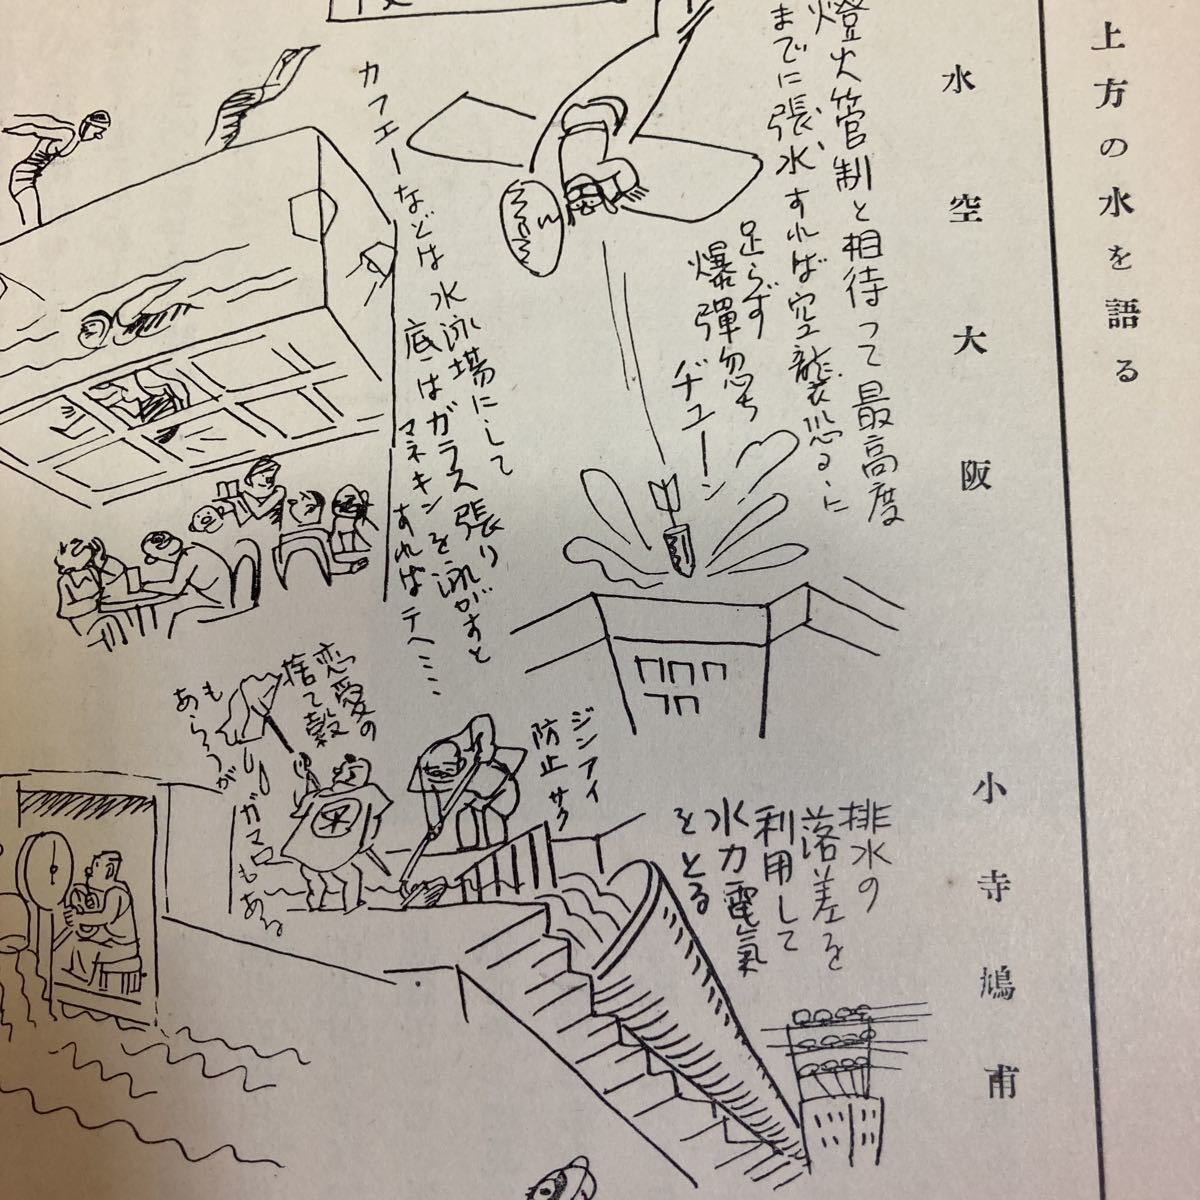 上方の水を語る
水空大阪
小寺鳩甫
燈火管制と相待って最高度
までに張水すれば空襲恐るに
足らず
爆彈忽ち
ヂューン
カフエーなどは水泳場にして
底はガラス張り
マネキンを泳がすと
すればテヘ……
排水の
落差を
利用して
水力電氣
をとる
ジンアイ
防止サク
恋愛の
捨て穀
もあらうが
ガマ口もある